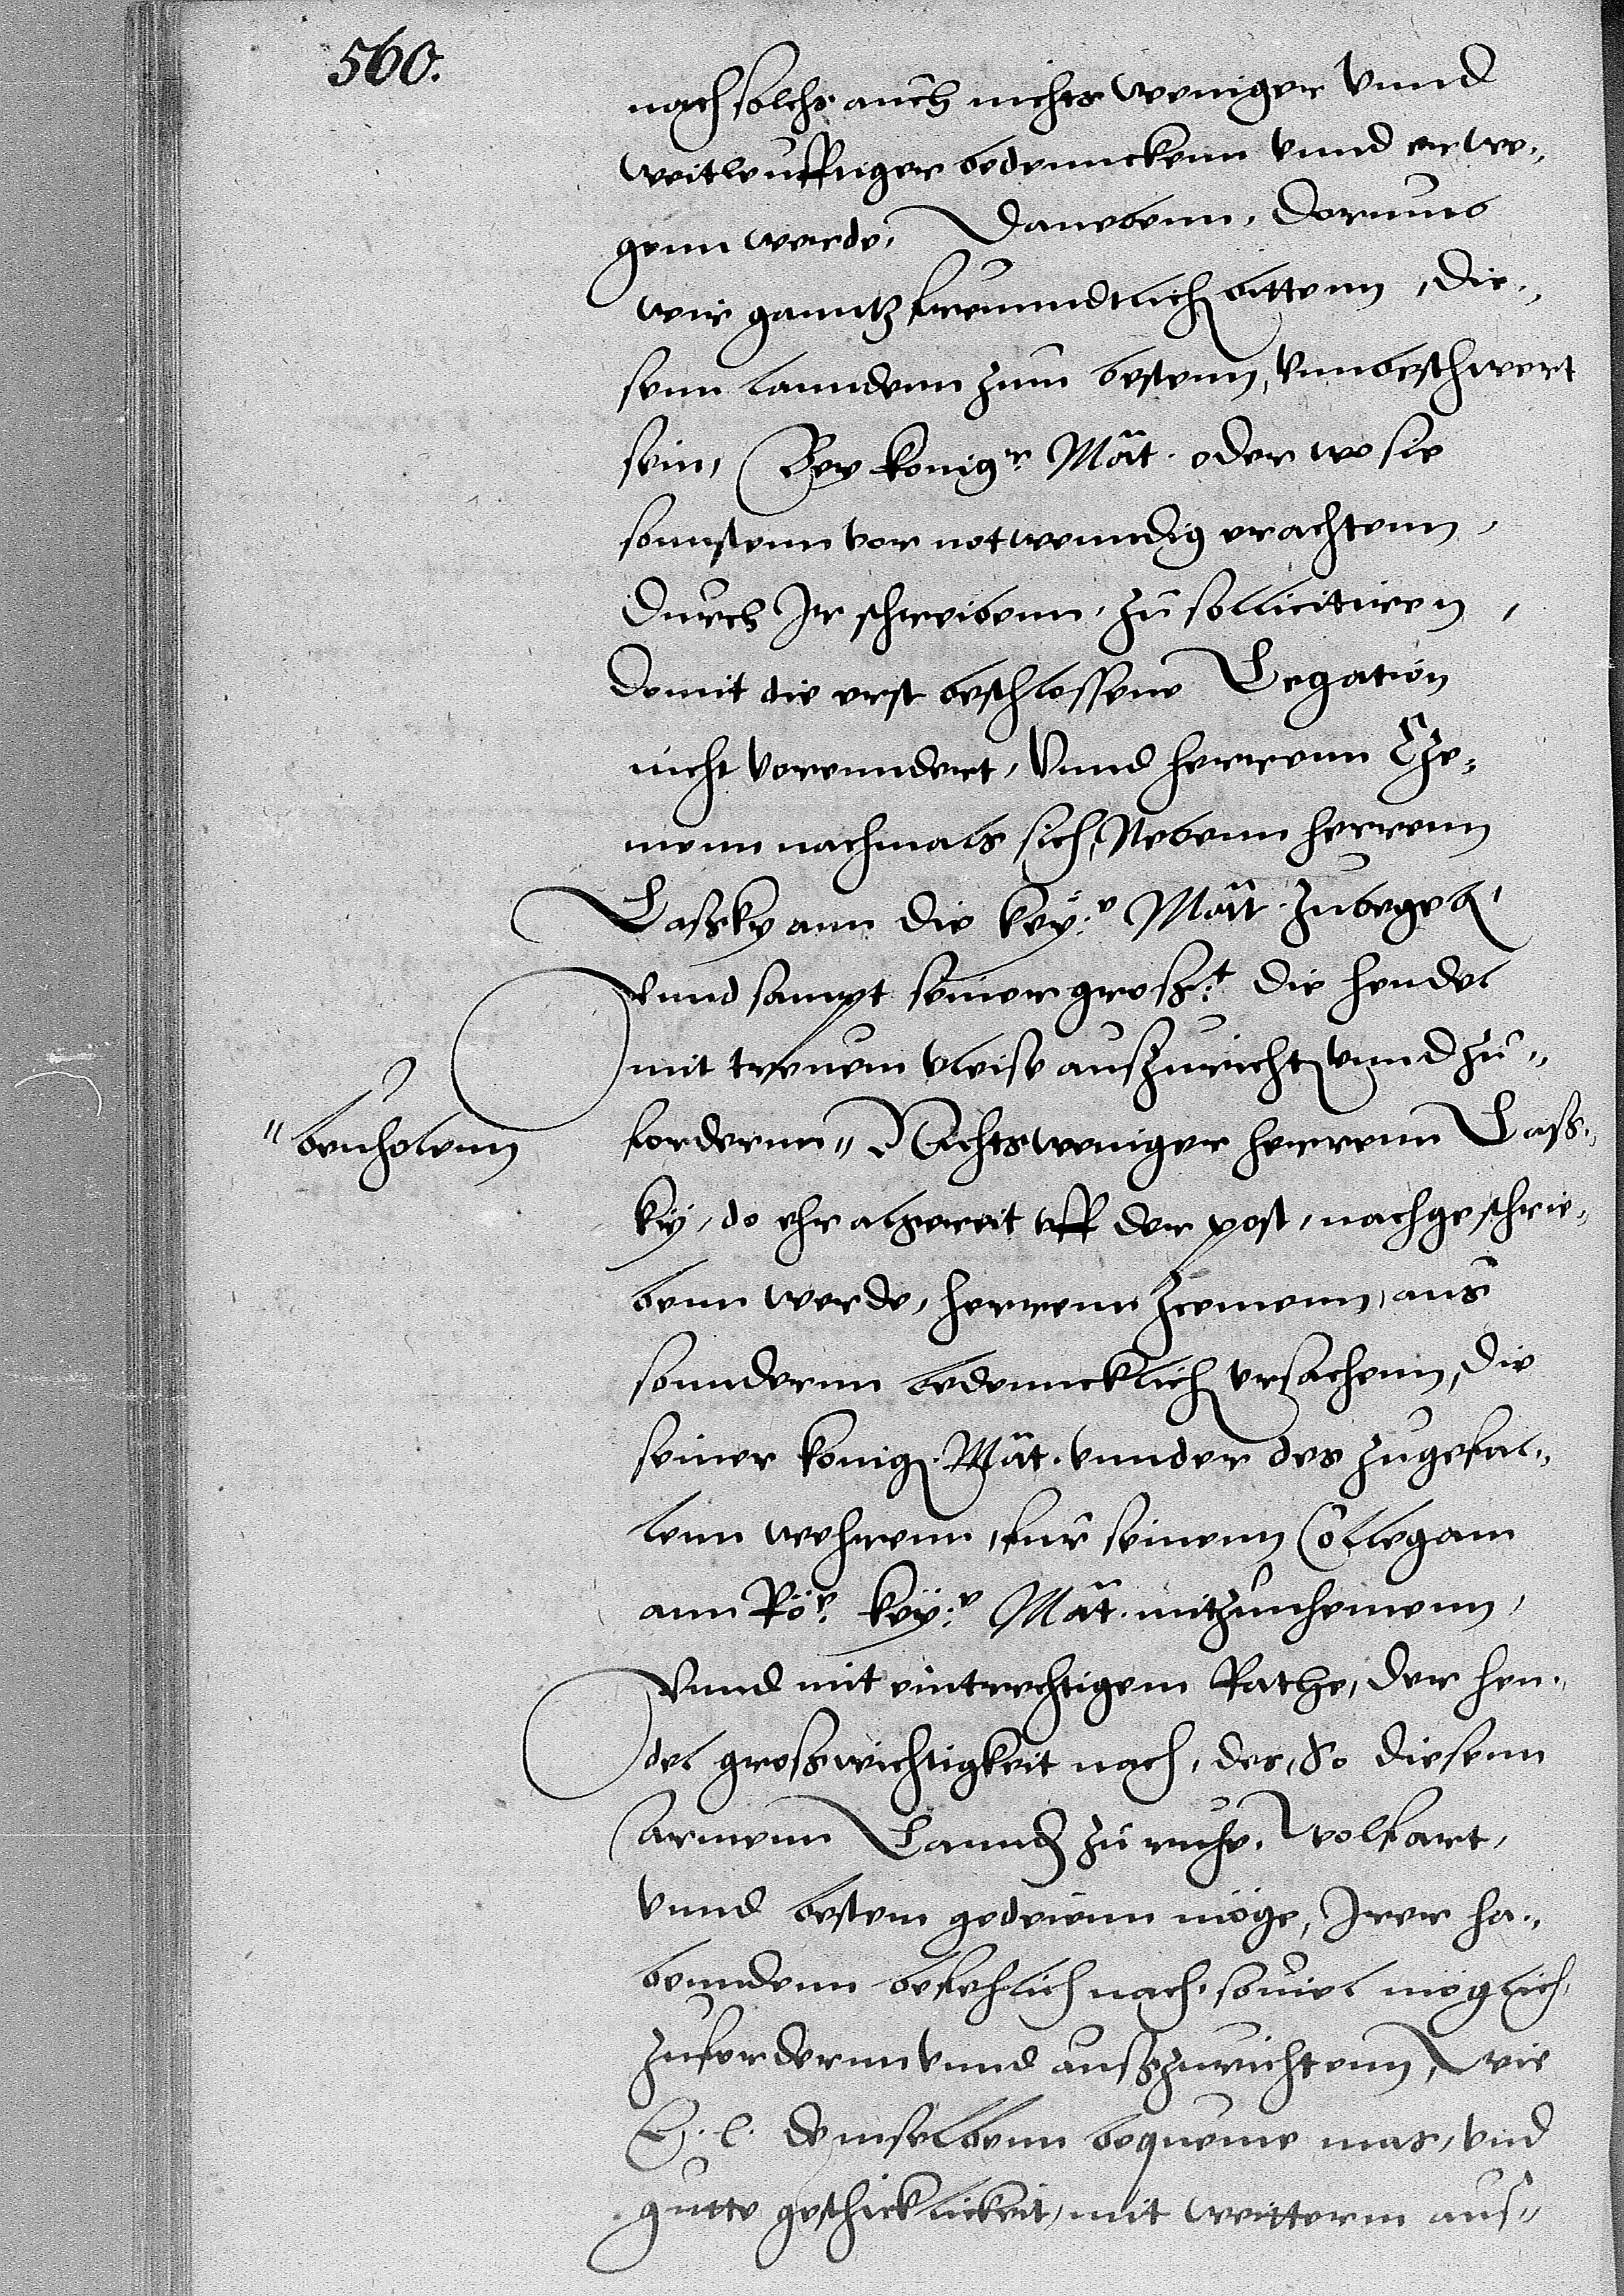 560.
nach solchs auch nichts weniger Vnnd
weitleufftiger bedennckenn vnnd erwe„
genn werde, Danebenn, Dorumb
wir ganntz freunndtlich bittenn, die„
senn lanndenn zum bestenn, vnnbeschwert
sein, Bey konigr. Mat. oder wo sie
sonnstenn vor notwenndig erachtenn,
Durch Ir schreibenn, zu sollicitiren,
Domit die erst beschlossene Legation
nicht vorenndert, Vnnd herrenn Che„
menn nachmals sich, Nebenn herrenn
Lassky ann die key:r Mat. zubegeb,
vnnd sampt seiner gross:t die hendel
mit treuem vleise auszuricht vnnd zu„
„beuholenn
fordernn„ Nichtsweniger herrenn Lass„
ky, do ehr alhereit vff der post, nachgeschrie„
benn werde, herrenn Hemenn, aus
sonndernn bedenncklich vrsachenn, die
seiner konig. Mat. vnnder des zugefal„
lenn wehrenn, fur seinenn Collegam
ann Rör. key:r Mat. mitzunehmenn,
Vnnd mit eintrechtigem Rathe, der hen„
del groswichtigkeit nach, des, So diesenn
armenn Lannd zu ruhe. Wolfart,
vnnd bestem gedeienn möge, Irer ha„
benndenn befehlich nach, souiel möglich,
zufordernn vnnd auszurichtenn, Wie
E. l. demselbenn bequeme mas, vnd
gutte geschicklickeit, mit weitterm aus„